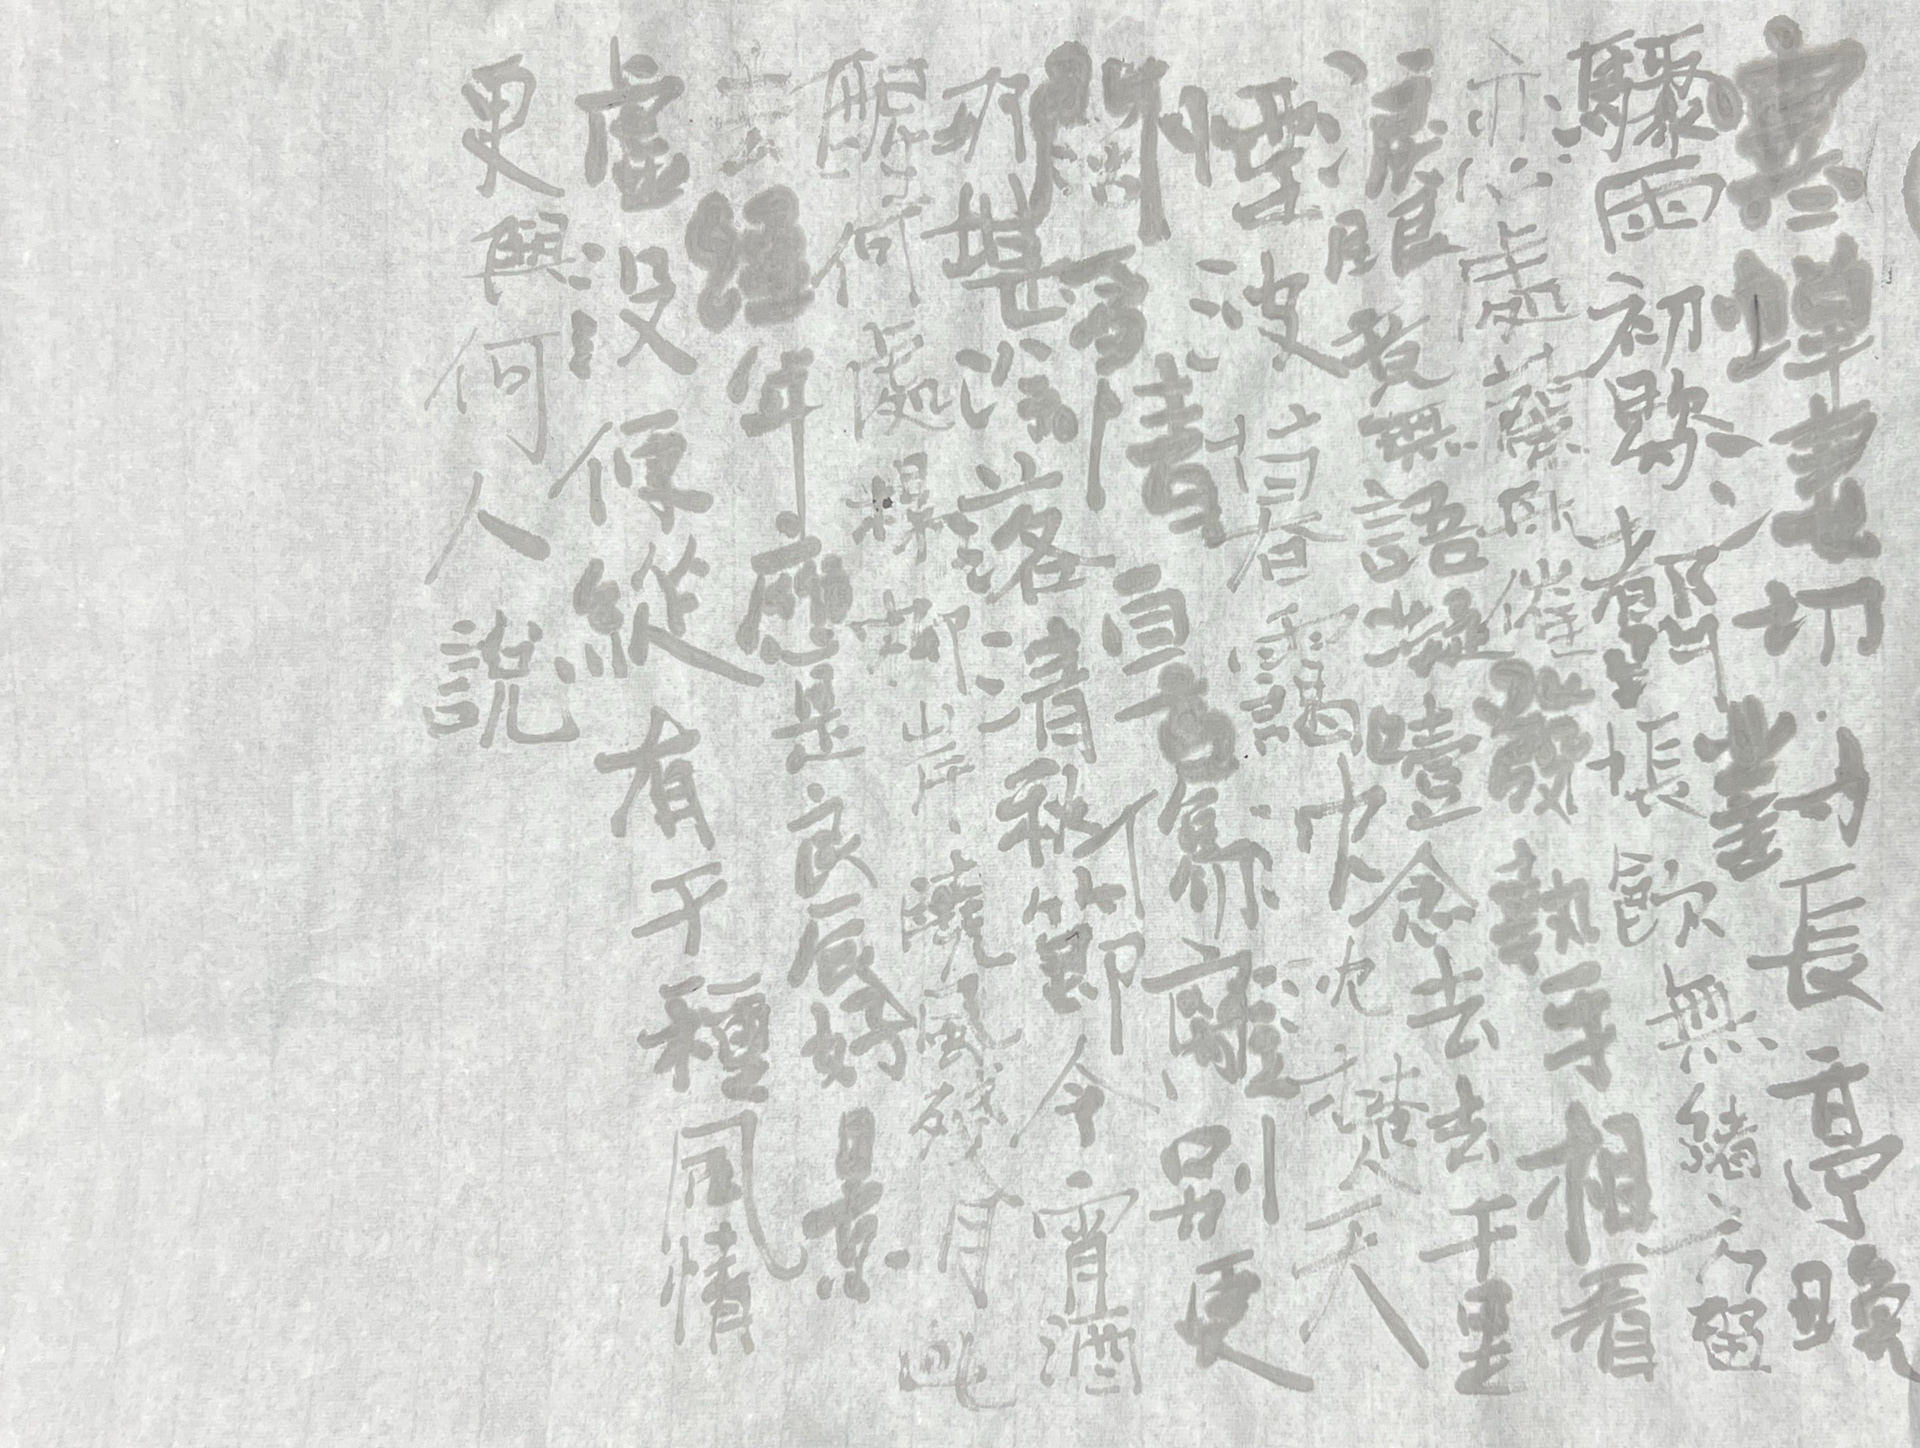 寒蟬凄切對長亭晚
驟雨初歇都門帳飲無緒方留
恋處蘭催發執手相看
淚眼竟無語凝噎念去去千里
煙波暮靄沈沈楚天
闊多情自古傷離別更
那堪冷落清秋節今宵酒
醒何處楊柳岸曉風殘月此
去經年應是良辰好景
虛設便縱有千種風情
更與何人說